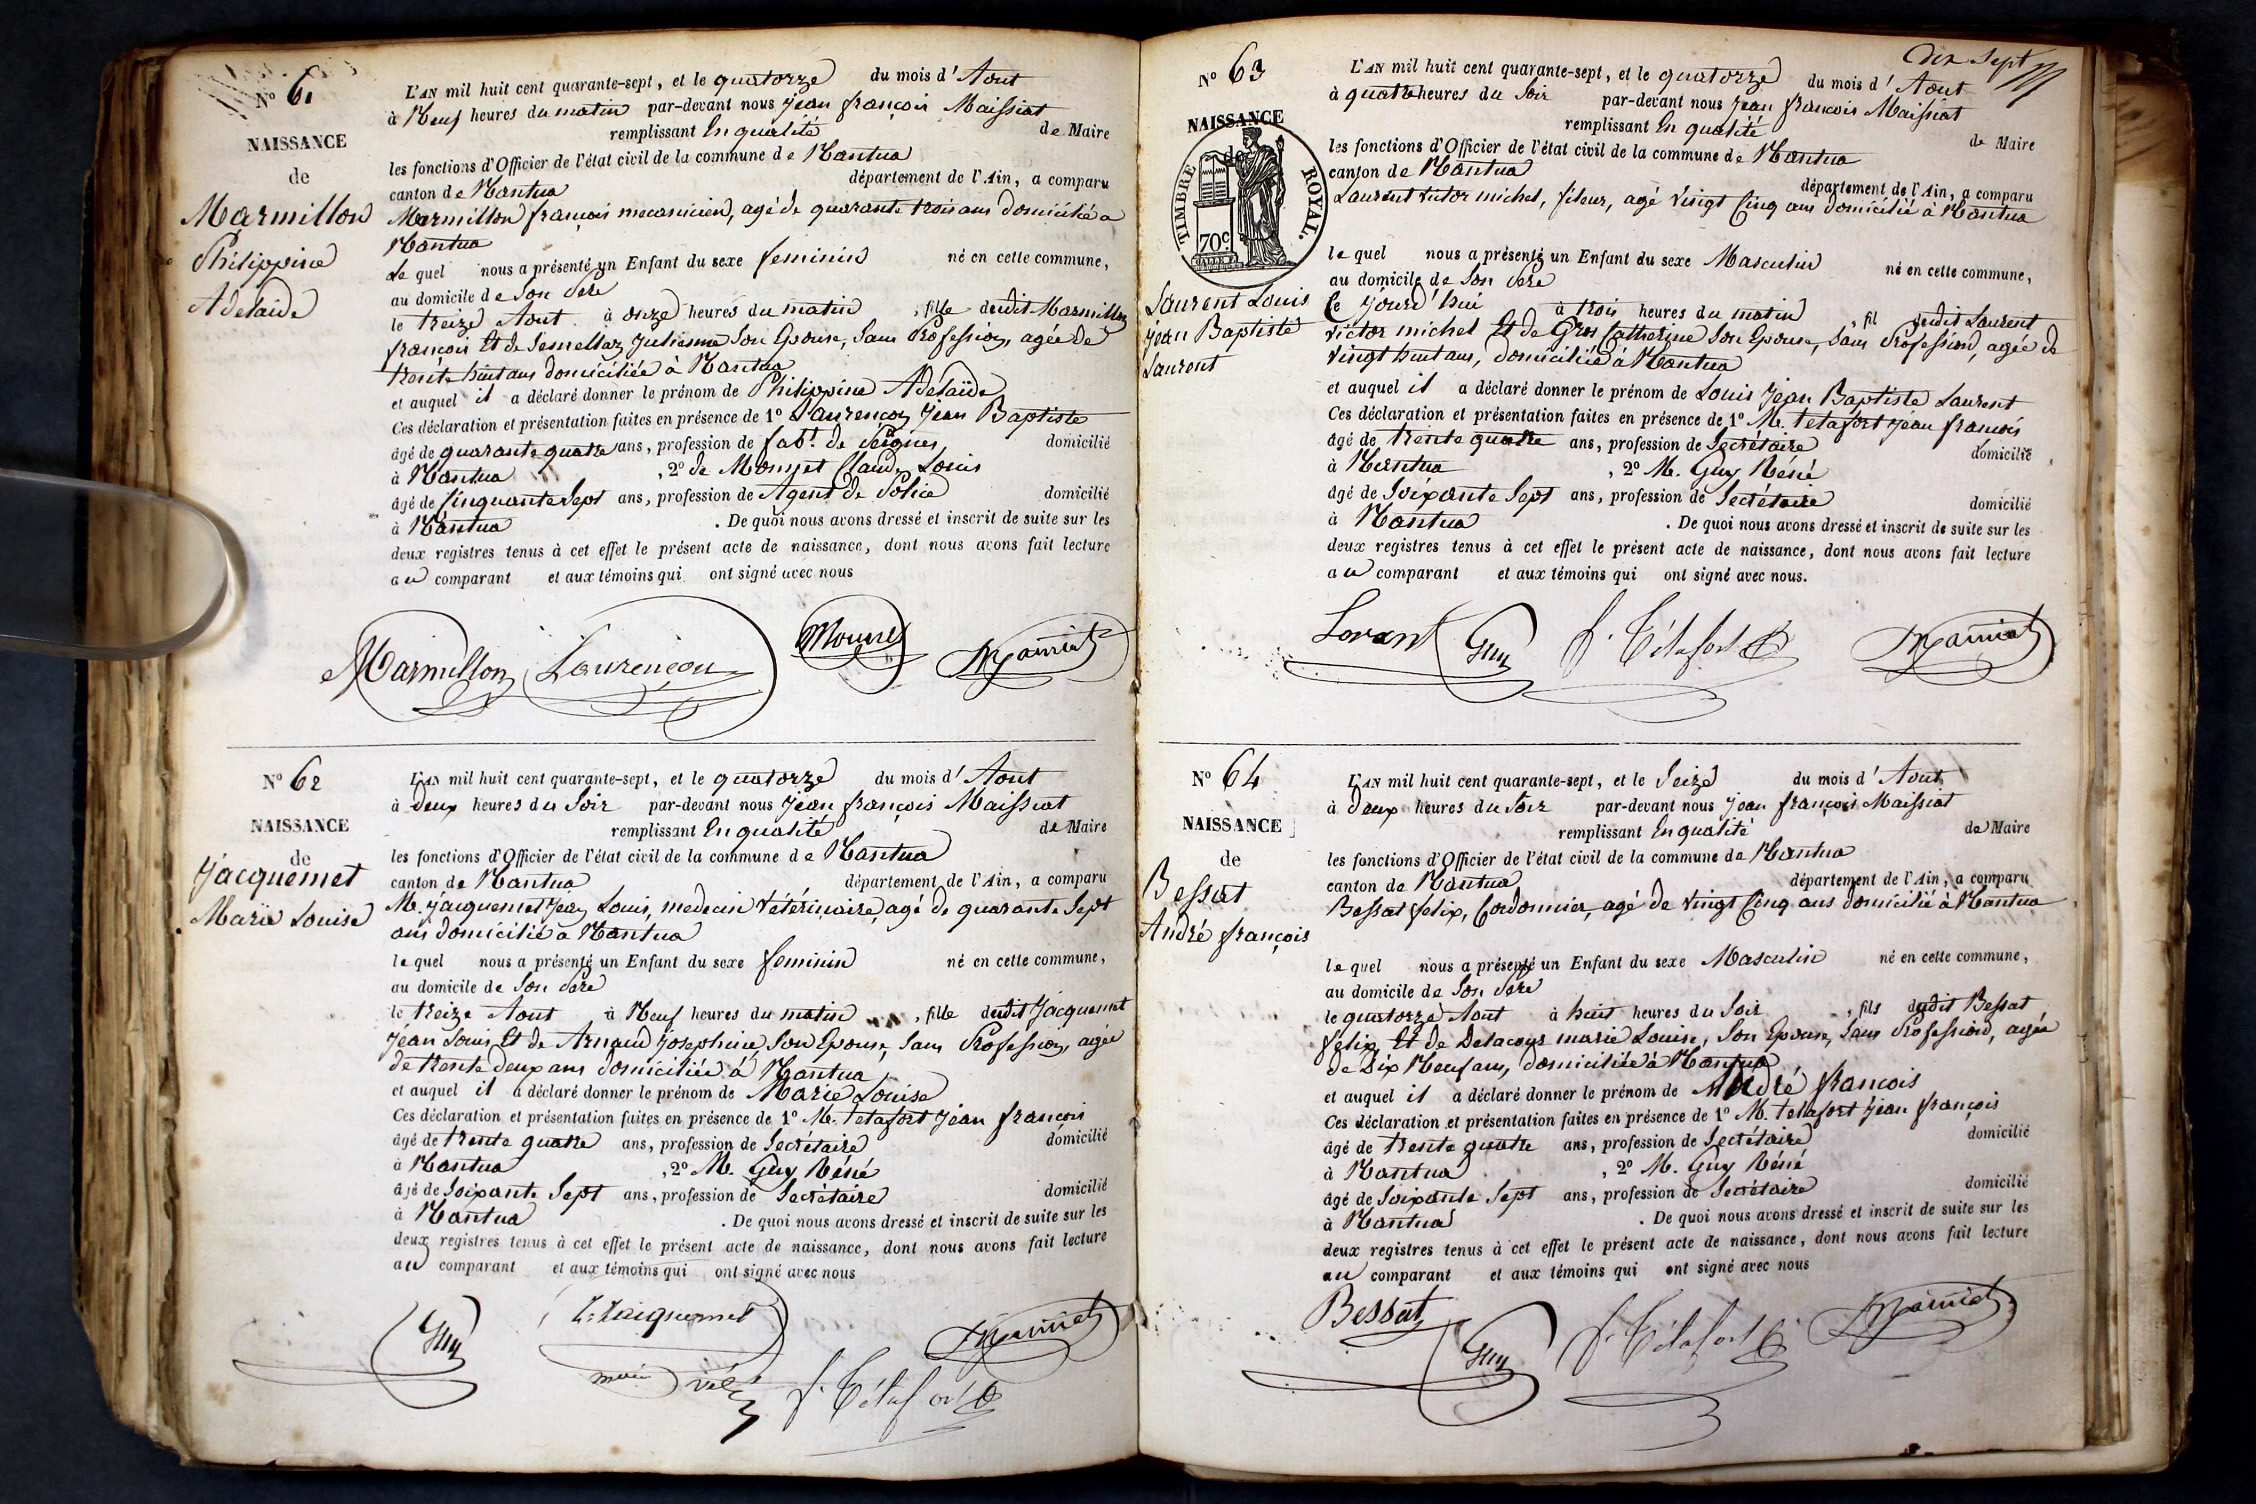 Nº 61
NAISSANCE
de
Marmillon
Philippine
Adelaïde
L'AN mil huit cent quarante-sept, et le quatorze du mois d'Aout
à Neuf heures du matin par-devant nous jean françois Maissiat
remplissant En qualité de Maire
les fonctions d'Officier de l'état civil de la commune de Nantua
canton de Nantua département de l'Ain, a comparu
Marmillon françois mecanicien, agé de quarante trois ans domicilié a
Nantua
le quel nous a présenté un Enfant du sexe feminin né en cette commune,
au domicile de Son Pere
le treize Aout à onze heures du matin, fille dudit Marmillon
françois Et de Julienne Son Epouse, Sans Profession, agée de
trente huit ans domiciliée à Nantua
et auquel il a déclaré donner le prénom de Philippine Adelaïde
Ces déclaration et présentation faites en présence de 1º Laurençon jean Baptiste
âgé de quarante quatre ans, profession de fabt. de Peignes domicilié
à Nantua, 2º de Mouret Claude Louis
âgé de Cinquante Sept ans, profession de Agent de Police domicilié
à Nantua. De quoi nous avons dressé et inscrit de suite sur les
deux registres tenus à cet effet le présent acte de naissance, dont nous avons fait lecture
au comparant et aux témoins qui ont signé avec nous
Marmillon Laurençon Mouret Maissiat
Nº 62
NAISSANCE
de
Jacquemet
Marie Louise
L'AN mil huit cent quarante-sept, et le quatorze du mois d'Aout
à deux heures du Soir par-devant nous jean françois Maissiat
remplissant En qualité de Maire
les fonctions d'Officier de l'état civil de la commune de Nantua
canton de Nantua département de l'Ain, a comparu
M. jacquemet jean Louis, medecin vétérinaire, agé de quarante Sept
ans domicilié a Nantua
le quel nous a présenté un Enfant du sexe feminin né en cette commune,
au domicile de Son Pere
le treize Aout à Neuf heures du matin, fille dudit Jacquemet
Jean Louis Et de Arnaud Josephine Son Epouse, Sans Profession, agée
de trente deux ans domiciliée à Nantua
et auquel il a déclaré donner le prénom de Marie Louise
Ces déclaration et présentation faites en présence de 1º M. tetafort Jean françois
âgé de trente quatre ans, profession de Secrétaire domicilié
à Nantua, 2º M. Guy Réné
âgé de Soixante Sept ans, profession de Secrétaire domicilié
à Nantua. De quoi nous avons dressé et inscrit de suite sur les
deux registres tenus à cet effet le présent acte de naissance, dont nous avons fait lecture
au comparant et aux témoins qui ont signé avec nous
Guy L. Jacquemet Maissiat
f. Tétafort
dix Sept
Nº 63
NAISSANCE
de
TIMBRE ROYAL.
70c
Laurent Louis
jean Baptiste
Laurent
L'AN mil huit cent quarante-sept, et le quatorze du mois d'Aout
à quatre heures du Soir par-devant nous Jean françois Maissiat
remplissant En qualité de Maire
les fonctions d'Officier de l'état civil de la commune de Nantua
canton de Nantua département de l'Ain, a comparu
Laurent victor michel, fileur, agé vingt Cinq ans domicilié à Nantua
le quel nous a présenté un Enfant du sexe Masculin né en cette commune,
au domicile de Son Pere
Ce jourd'hui à trois heures du matin, fil dudit Laurent
victor michel Et de Gros Catherine Son Epouse, Sans Profession, agée de
vingt huit ans, domiciliée à Nantua
et auquel il a déclaré donner le prénom de Louis Jean Baptiste Laurent
Ces déclaration et présentation faites en présence de 1º M. tetafort jean françois
âgé de trente quatre ans, profession de Secrétaire domicilié
à Nantua, 2º M. Guy Réné
âgé de Soixante Sept ans, profession de Secrétaire domicilié
à Nantua. De quoi nous avons dressé et inscrit de suite sur les
deux registres tenus à cet effet le présent acte de naissance, dont nous avons fait lecture
au comparant et aux témoins qui ont signé avec nous.
Lorant Guy f. Tétafort Maissiat
Nº 64
NAISSANCE
de
Bessat
André françois
L'AN mil huit cent quarante-sept, et le Seize du mois d'Aout
à deux heures du Soir par-devant nous Jean françois Maissiat
remplissant En qualité de Maire
les fonctions d'Officier de l'état civil de la commune de Nantua
canton de Nantua département de l'Ain, a comparu
Bessat felix, Cordonnier, agé de vingt Cinq ans domicilié à Nantua
le quel nous a présenté un Enfant du sexe Masculin né en cette commune,
au domicile de Son Pere
le quatorze Aout à huit heures du Soir, fils dudit Bessat
felix Et de Delacous marie Louise, Son Epouse, Sans Profession, agée
de Dix Neuf ans, domiciliée à Nantua
et auquel il a déclaré donner le prénom de André françois
Ces déclaration et présentation faites en présence de 1º M. tetafort Jean françois
âgé de trente quatre ans, profession de Secrétaire domicilié
à Nantua, 2º M. Guy Réné
âgé de Soixante Sept ans, profession de Secrétaire domicilié
à Nantua. De quoi nous avons dressé et inscrit de suite sur les
deux registres tenus à cet effet le présent acte de naissance, dont nous avons fait lecture
au comparant et aux témoins qui ont signé avec nous
Bessat Guy f. Tétafort Maissiat